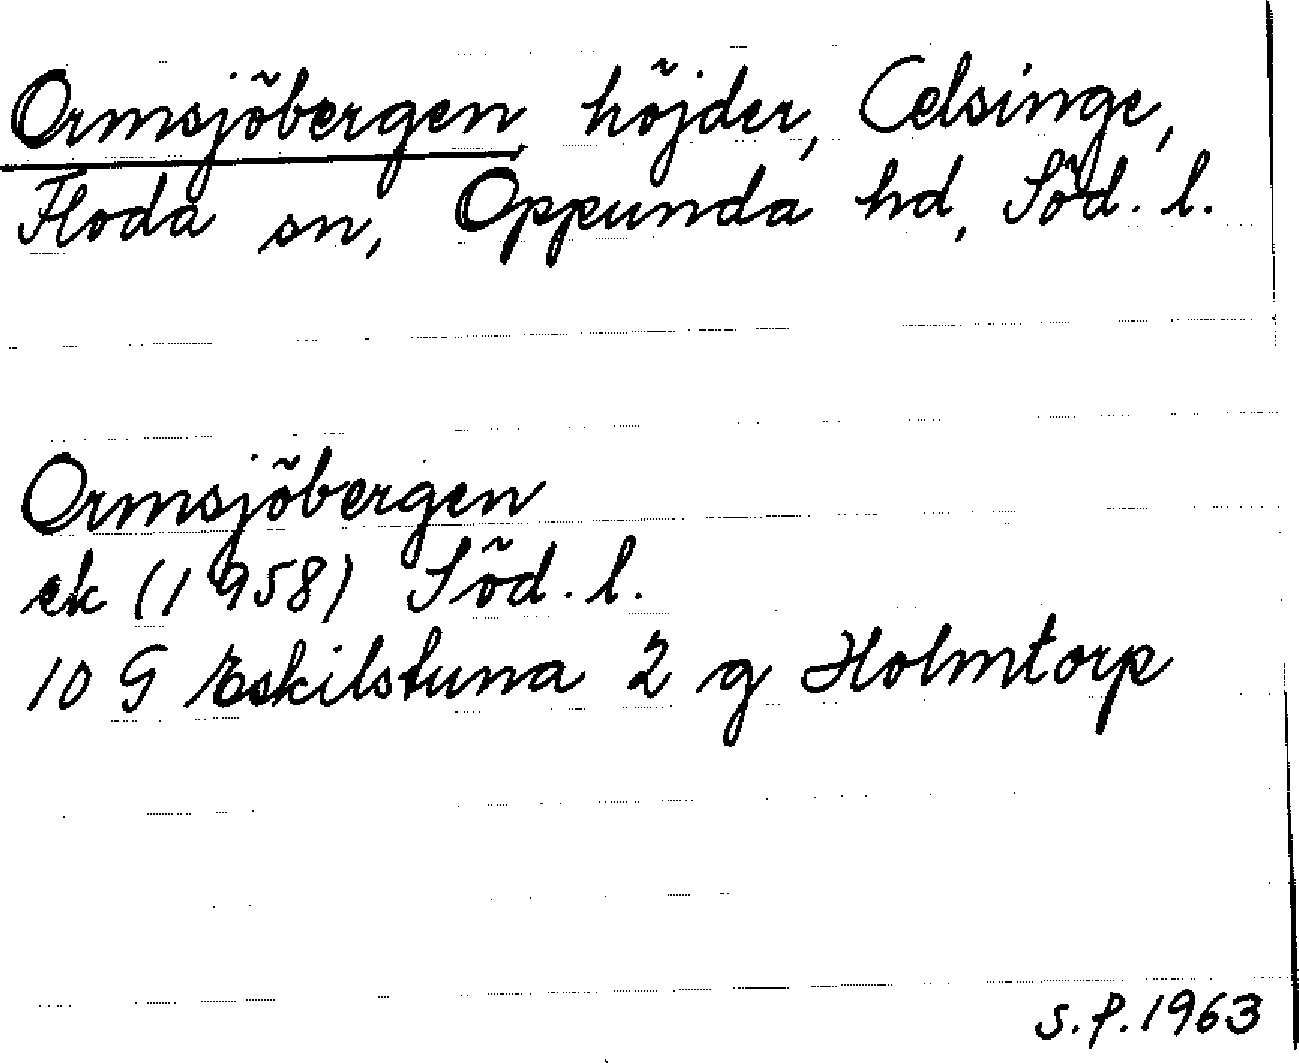 Ormsjöbergen, höjder, Celsinge,
Floda sn, Oppunda hd, Söd. l.
Ormsjöbergen
ek (1958) Söd. l.
10 G Eskilstuna 2 g Holmtorp
S.P. 1963